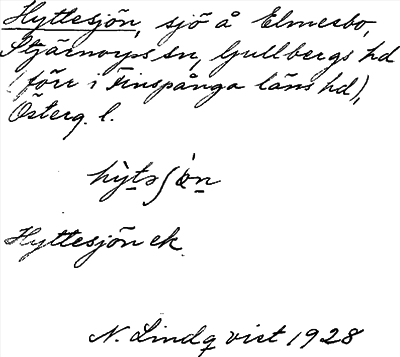 Hyttesjön, sjö å Elmesbo,
Stjärnorps sn, Gullbergs hd
(förr i Finspånga läns hd),
Österg. l.
hỳtəʃòn
Hyttesjön ek.
N. Lindqvist 1928